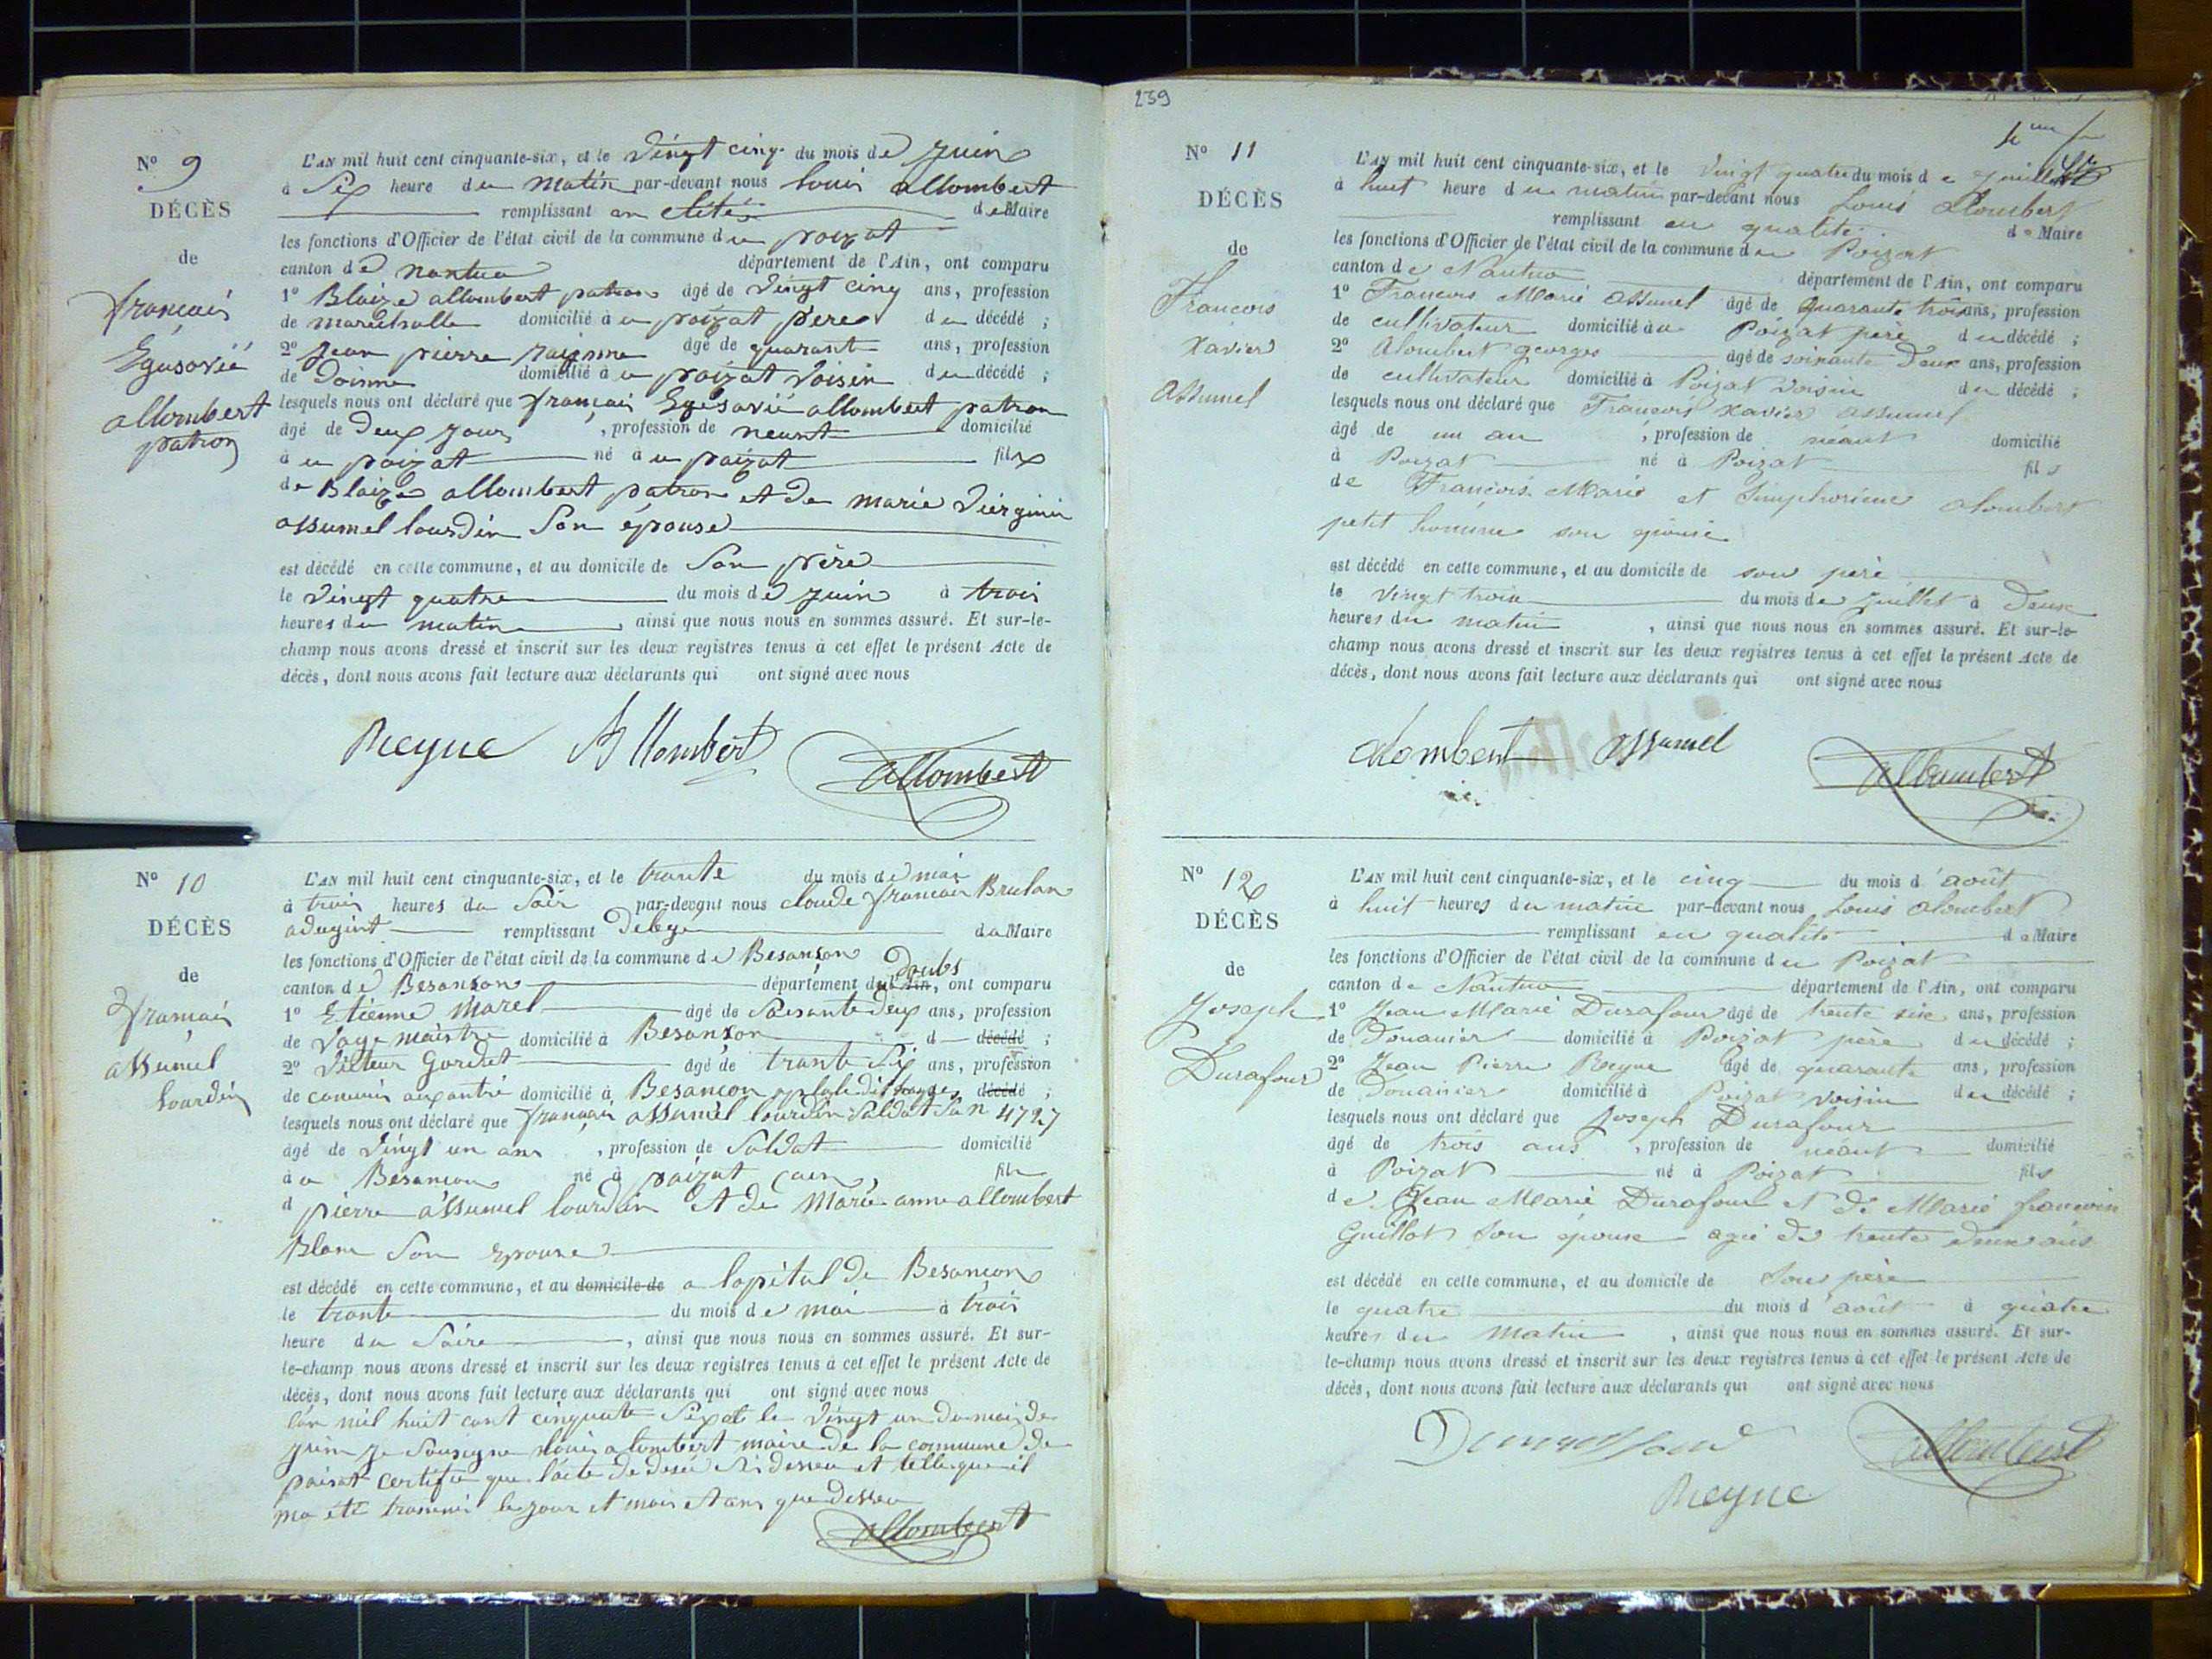 N° 9
DÉCÈS
de
françois
Egusavié
allombert
patron
L'AN mil huit cent cinquante-six, et le vingt cinq du mois de Juin
à Six heure du matin par-devant nous louis allombert
remplissant en de Maire
les fonctions d'Officier de l'état civil de la commune du poizat
canton de nantua département de l'Ain, ont comparu
1° Blaize allombert patron âgé de vingt cinq ans, profession
de marechalle domicilié à u poizat père du décédé ;
2° Jean pierre âgé de quarant ans, profession
de domicilié à u poizat voisin du décédé ;
lesquels nous ont déclaré que françois Egusavié allombert patron
âgé de deux jours, profession de neant domicilié
à u poizat né à u poizat fils
de Blaize allombert patron et de marie viergini
assumel lourdin Son épouse
est décédé en cette commune, et au domicile de Son père
le vingt quatre du mois de Juin à trois
heures du matin, ainsi que nous nous en sommes assuré. Et sur-le-
champ nous avons dressé et inscrit sur les deux registres tenus à cet effet le présent Acte de
décès, dont nous avons fait lecture aux déclarants qui ont signé avec nous
Reyne Allombert allombert
N° 10
DÉCÈS
de
françois
assumel
lourdin
L'AN mil huit cent cinquante-six, et le trante du mois de mai
à trois heures du Soir par-devant nous claude françois Brulan
adugint remplissant de Maire
les fonctions d'Officier de l'état civil de la commune de Besançon
canton de Besançon département du Doubs l'Ain, ont comparu
1° Etienne Marel âgé de Soisante deux ans, profession
de domicilié à Besançon d décédé ;
2° Victeur âgé de trante Six ans, profession
de domicilié à Besançon décédé ;
lesquels nous ont déclaré que françois assumel lourdin Soldat Su n 4727
âgé de vingt un ans, profession de Soldat domicilié
à u Besançon né à poizat fils
d pierre assumel lourdin et de Marie anne allombert
Blanc Son Epouse
est décédé en cette commune, et au domicile de a lopital de Besançon
le trante du mois de mai à trois
heure du Soire, ainsi que nous nous en sommes assuré. Et sur-
le-champ nous avons dressé et inscrit sur les deux registres tenus à cet effet le présent Acte de
décès, dont nous avons fait lecture aux déclarants qui ont signé avec nous
l'an mil huit cent cinquante Six et le vingt un du mois de
juin je Sousigne louis alombert maire de la commune de
poizat certifie que l'acte de désé Si deseu et telle que il
ma été transmis le jour et mois et ans que desseu
allombert
239
N° 11
DÉCÈS
de
Francois
Xavier
Assumel
L'AN mil huit cent cinquante-six, et le vingt quatre du mois de juillet
à huit heure du matin par-devant nous Louis Alombert
remplissant en qualité de Maire
les fonctions d'Officier de l'état civil de la commune du Poizat
canton de Nantua département de l'Ain, ont comparu
1° François Marie Assumel âgé de quarante trois ans, profession
de cultivateur domicilié à u Poizat père du décédé ;
2° Alombert georges âgé de soixante deux ans, profession
de cultivateur domicilié à Poizat voisin du décédé ;
lesquels nous ont déclaré que François Xavier assumel
âgé de un an, profession de néant domicilié
à Poizat né à Poizat fils
de François Marie et Simphorienne alombert
petit homme son épouse
est décédé en cette commune, et au domicile de son père
le vingt trois du mois de juillet à deux
heures du matin, ainsi que nous nous en sommes assuré. Et sur-le-
champ nous avons dressé et inscrit sur les deux registres tenus à cet effet le présent Acte de
décès, dont nous avons fait lecture aux déclarants qui ont signé avec nous
alombert assumel allombert
N° 12
DÉCÈS
de
Joseph
Durafour
L'AN mil huit cent cinquante-six, et le cinq du mois d'août
à huit heures du matin par-devant nous Louis alombert
remplissant en qualité de Maire
les fonctions d'Officier de l'état civil de la commune du Poizat
canton de Nantua département de l'Ain, ont comparu
1° Jean Marie Durafour âgé de trente six ans, profession
de Douanier domicilié à Poizat père du décédé ;
2° Jean Pierre Reyne âgé de quarante ans, profession
de Douanier domicilié à Poizat voisin du décédé ;
lesquels nous ont déclaré que Joseph Durafour
âgé de trois ans, profession de néant domicilié
à Poizat né à Poizat fils
de Jean Marie Durafour et de Marie françoise
Guillot son épouse agée de trente deux ans
est décédé en cette commune, et au domicile de Son père
le quatre du mois d'août à quatre
heures du matin, ainsi que nous nous en sommes assuré. Et sur-
le-champ nous avons dressé et inscrit sur les deux registres tenus à cet effet le présent Acte de
décès, dont nous avons fait lecture aux déclarants qui ont signé avec nous
allombert
Reyne